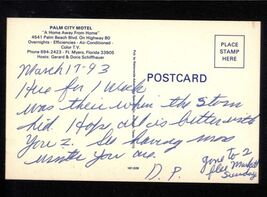 PALM CITY MOTEL
"A Home Away From Home"
4541 Palm Beach Blvd. On Highway 80
Overnights - Efficiencies - Air-Conditioned
Color T.V.
Phone 694-2423 - Ft. Myers, Florida 33905
Hosts: Gerard & Doris Schiffhauer
PLACE
STAMP
HERE
POSTCARD
March 17-93
Here for 1 Week
was there when the Storm
hid. Hope all is better with
You 2. See having more
winter you are.
D. P.
gone to 2
flee Markett
Sunday